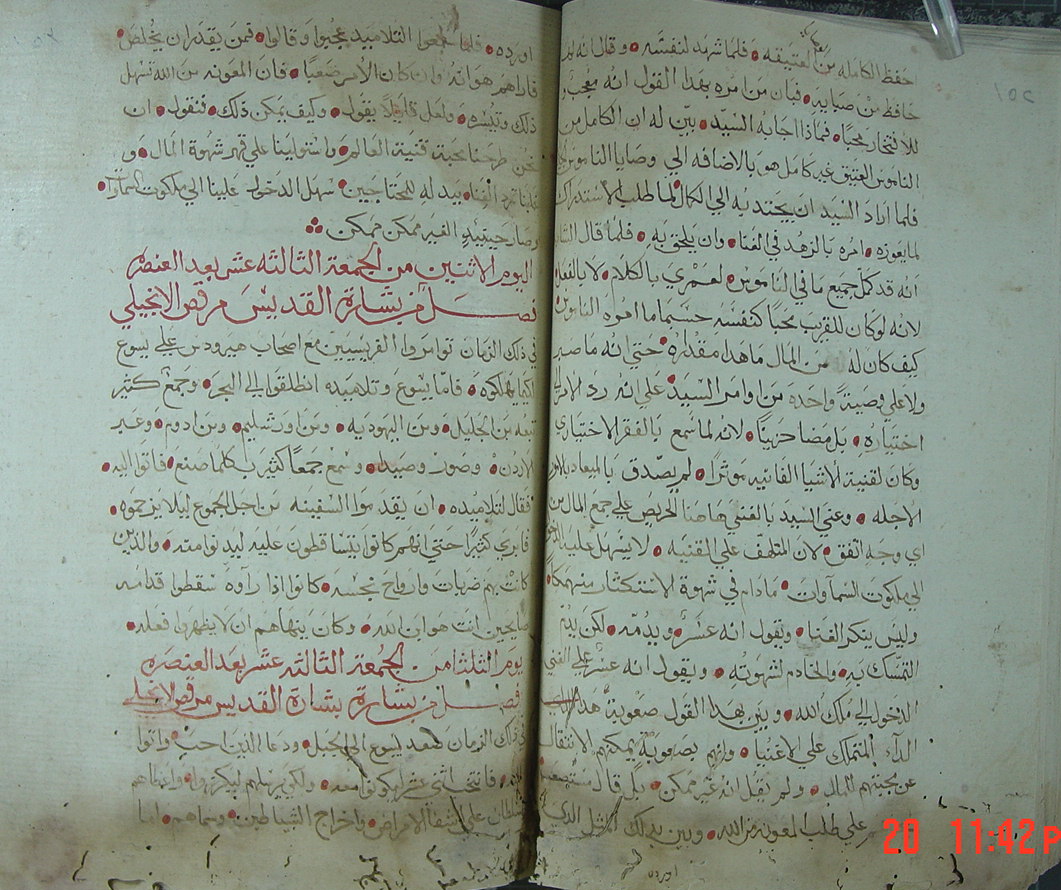 حفظ الكامله من العتيقه • فلما شهد لنفسه • وقال انه قد
حافظ من صبايه • فبان من امره بهذا القول انه معجب
للافتخار محبا • فماذا اجابه السيد • بين له ان الكامل من
الناموس العتيق غير كامل هو بالاضافه الي وصايا الناموس
فلما اراد السيد ان يجتذبه الي الكمال لما طلب الاستدراك
لما يعوزه • امره بالزهد في القنا • وان يلحق به • فلما قال الشاب
انه قد كمل جميع ما في الناموس • لعمري بالكلام • لا بالفعل
لانه لو كان للقريب محبا كنفسه حسبما امره الناموس
كيف كان له من المال ما هذا مقداره • حتي انه ما صبر
ولا علي وصية واحده من اوامر السيد • علي انه رد الامر الي
اختياره • بل مضا حزينا • لانه لما سمع بالفقر الاختياري
وكان لقنية الاشيا الفانيه موثرا • لم يصدق بالميعاد بالامور
الاجله • وعني السيد بالغني هاهنا الحريص علي جمع المال من
اي وجه اتفق • لان المتلهف علي القنيه • لا يسهل عليه الدخول
الي ملكوت السماوات • مادام في شهوة الاستكثار منهمكا •
وليس ينكر الغنا • ويقول انه عسر • ويذمه • لكن يذم
التمسك به • والخادم لشهوته • ويقول انه عسر علي الغني
الدخول الي ملك الله • وبين بهذا القول صعوبة هذا
الداء المتملك علي الاغنيا • وانهم بصعوبة يمكنهم الانتقال
عن محبتهم للمال • ولم يقل انه غير ممكن • بل قال مستصعب
علي طلب المعونه من الله • وبين بذلك المثل الذي
اورده
اورده • فلما سمعوا التلاميذ عجبوا وقالوا • فمن يقدر ان يخلص •
فاراهم هو انه وان كان الامر صعبا • فان المعونه من الله تسهل
ذلك وتيسره • ولعل قايلا يقول • وكيف يمكن ذلك • فنقول • ان
نحن طرحنا محبة قنية العالم • واستولينا علي قهر شهوة المال • و
الفنا • ببذله للمحتاجين • سهل الدخول علينا الي ملكوت السماوات •
وصار حينيذ الغير ممكن ممكن
اليوم الاثنين من الجمعة الثالثه عشر بعد العنصره
فصل من بشارة القديس مرقص الانجيلي
في ذلك الزمان توامروا الفريسيين مع اصحاب هيرودس علي يسوع
لكيما يهلكوه • فاما يسوع وتلاميذه انطلقوا الي البحر • وجمع كثير
تبعه من الجليل • ومن اليهوديه • ومن اورشليم • ومن ادوم • وعبر
الاردن • وصور وصيدا • وسمع جمعا كثير بكلما صنع • فاتوا اليه •
فقال لتلاميذه • ان يقدموا السفينه من اجل الجموع ليلا يزحموه •
فابري كثيرا حتي انهم كانوا يتساقطون عليه ليدنوا منه • والذين
كانت بهم ضربات وارواح نجسه • كانوا اذا راوه سقطوا قدامه
صايحين انت هو ابن الله • وكان ينهاهم ان لا يظهروا فعله •
يوم الثلثا من الجمعة الثالثه عشر بعد العنصره
فصل من بشارة بشارة القديس مرقص الانجيلي
في ذلك الزمان صعد يسوع الي الجبل • ودعا الذين احب • واتوا
اليه • فانتخب اثني عشر ليكونوا معه • ولكي يرسلهم ليكرزوا • واعطاهم
سلطان علي شفا الامراض • واخراج الشياطين • وسماهم •
20 11:42 P